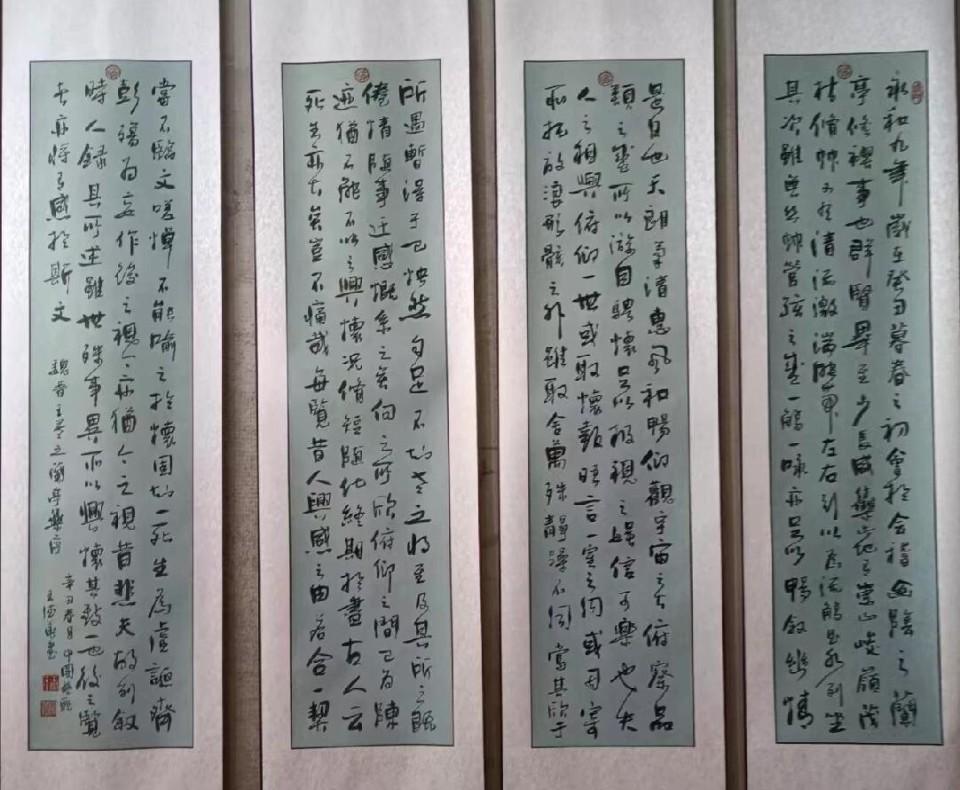 永和九年歲在癸丑暮春之初會於會稽山陰之蘭
亭修禊事也群賢畢至少長咸集此地有崇山峻嶺茂
林脩竹又有清流激湍映帶左右引以為流觴曲水列坐
其次雖無絲竹管弦之盛一觴一詠亦足以暢敘幽情
是日也天朗氣清惠風和暢仰觀宇宙之大俯察品
類之盛所以游目騁懷足以極視之娛信可樂也夫
人之相與俯仰一世或取懷晤言一室之內或因寄
所托放浪形骸之外雖取舍萬殊靜躁不同當其欣于
所遇暫得于己怏然自足不知老之將至及其所之既
倦情隨事迁感慨系之矣向之所欣俯仰之間已為陳
迹猶不能不以之興懷況脩短隨化終期於盡古人云
死生亦大矣豈不痛哉每覽昔人興感之由若合一契
嘗不臨文嗟悼不能喻之於懷固知一死生為虛誕齊
彭殤為妄作後之視今亦猶今之視昔悲夫故列敘
時人錄其所述雖世殊事異所以興懷其致一也後之覽
者亦將有感於斯文 魏晉王羲之蘭亭集序
辛丑春月中國
王書